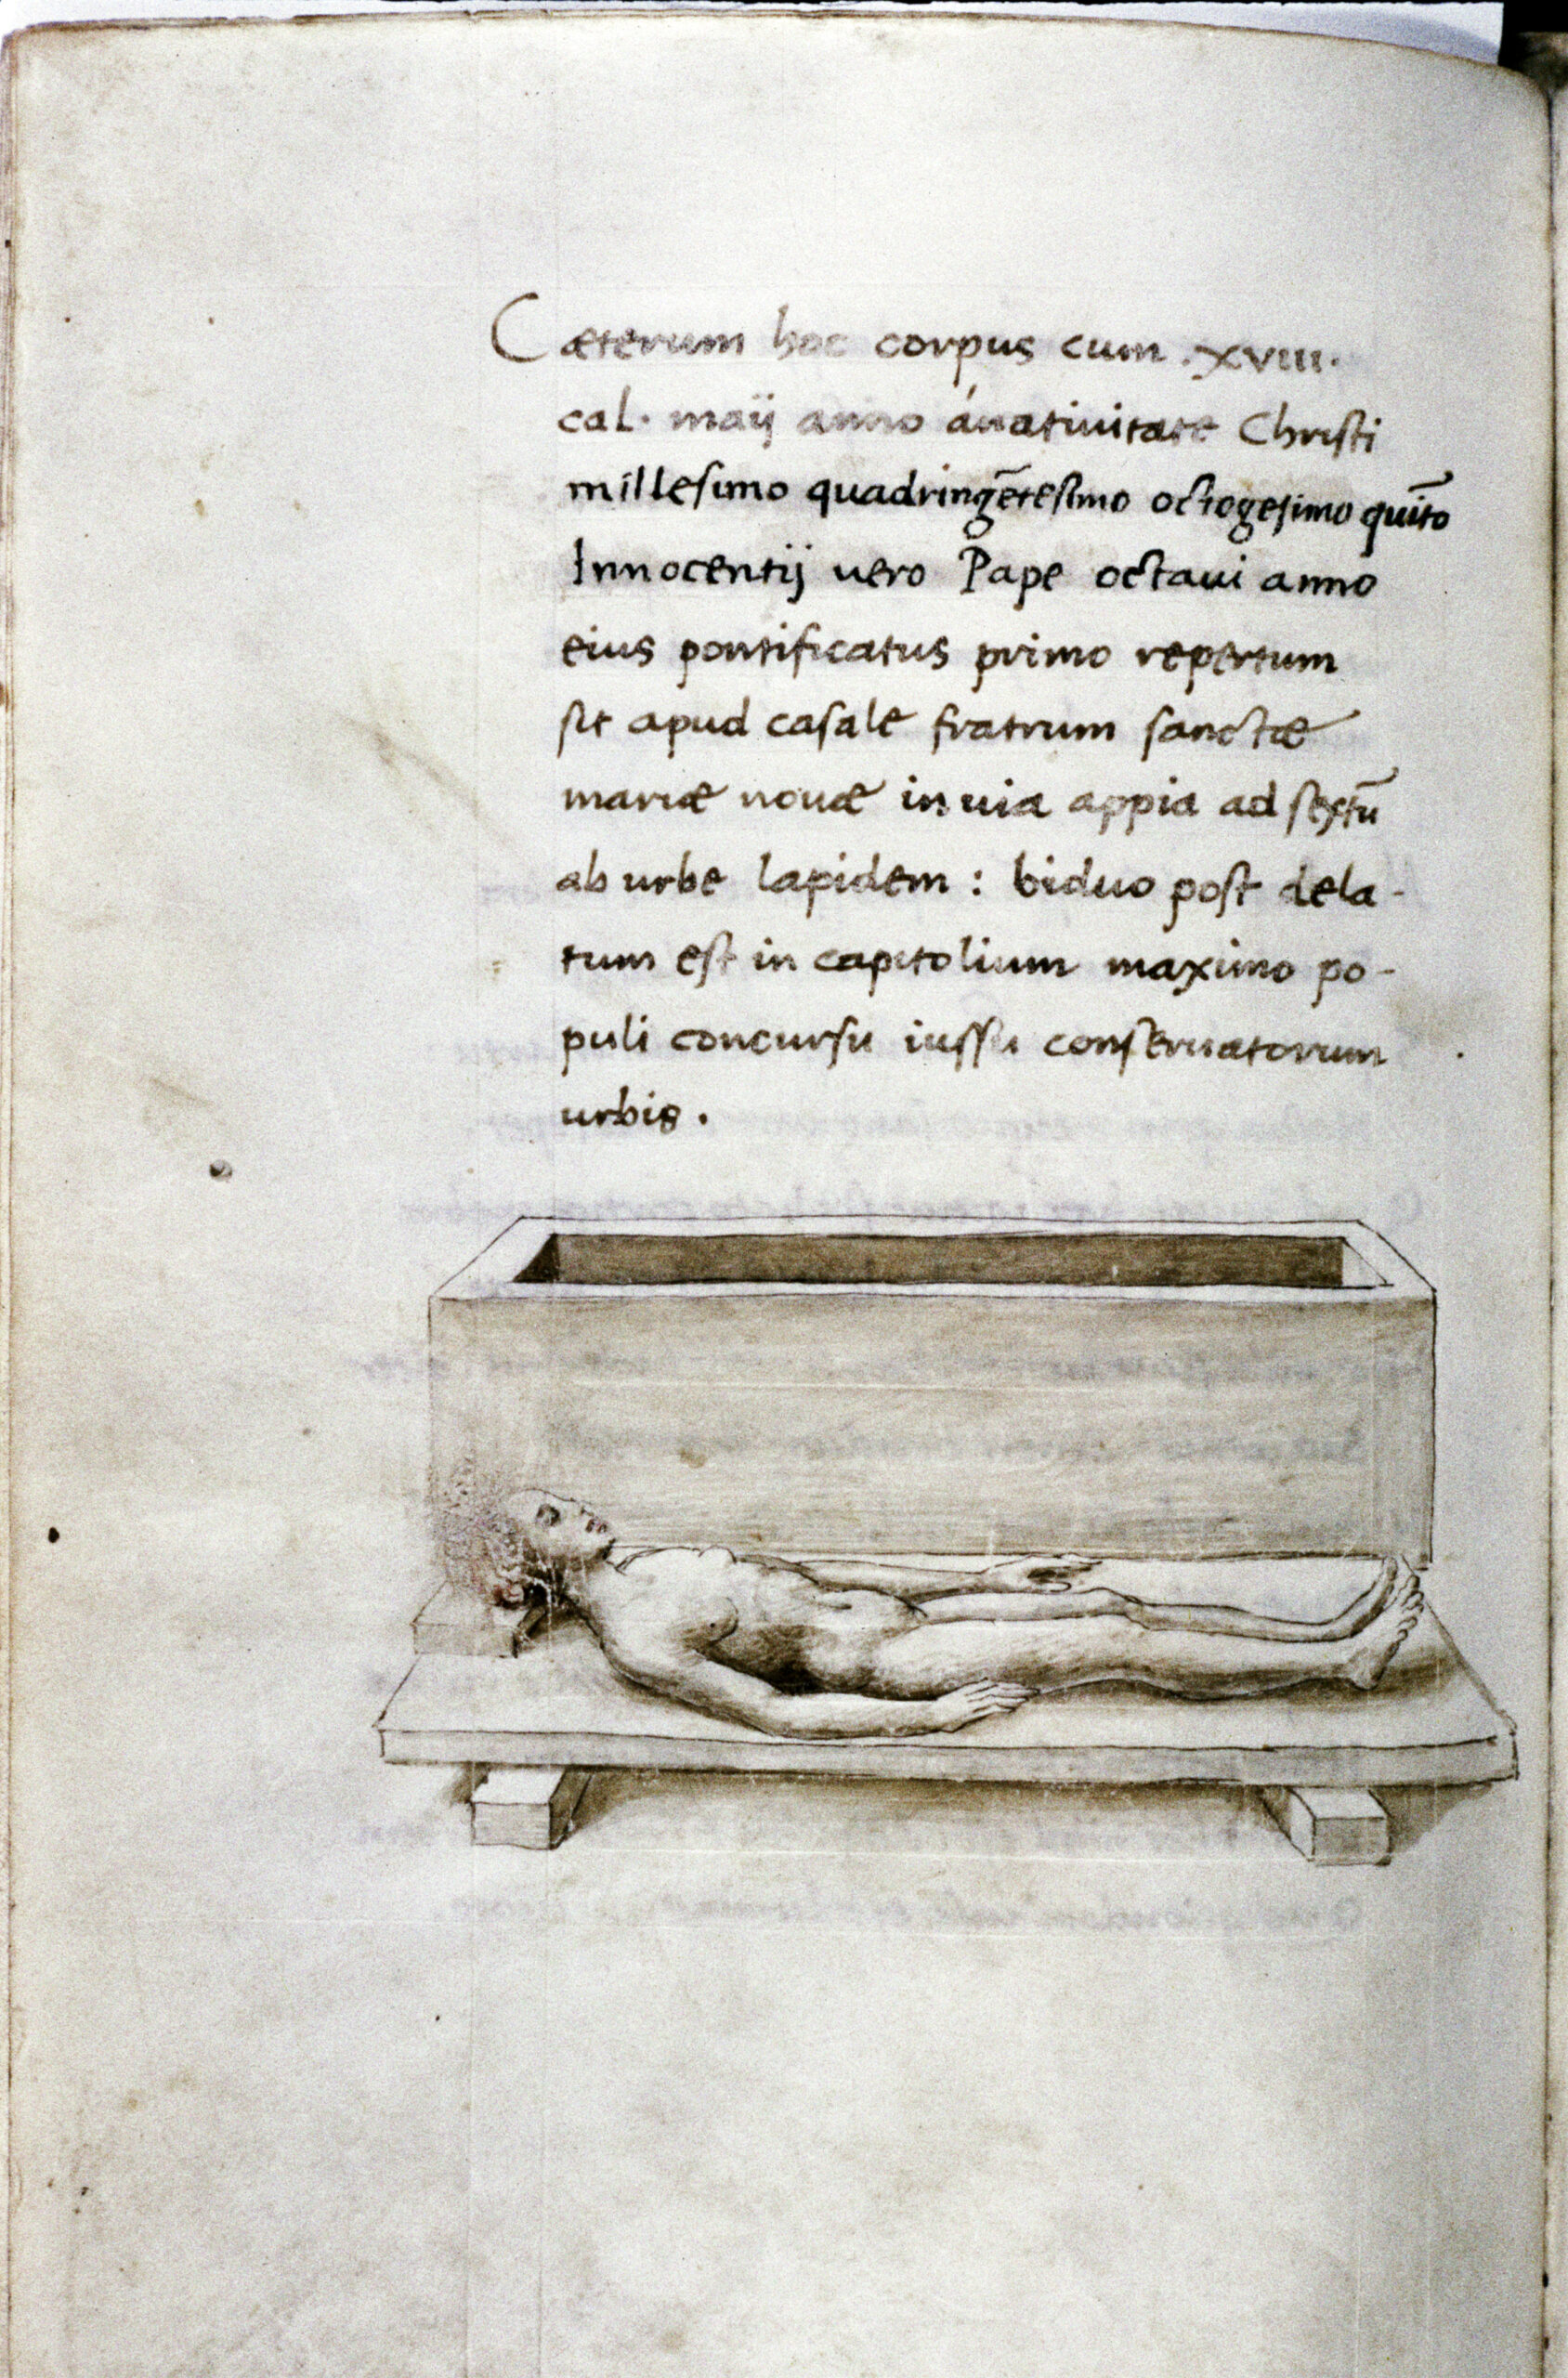 Cæterum hoc corpus cum .xviii.
cal. maij anno ánatiuitate Christi
millesimo quadringẽtesimo octogesimo quĩto
Innocentij vero Pape octaui anno
eius pontificatus primo repertum
sit apud casale fratrum sanctæ
mariæ nouæ in uia appia ad sextũ
ab urbe lapidem : biduo post dela-
tum est in capitolium maximo po-
puli concursu iussu conseruatorum
urbis .